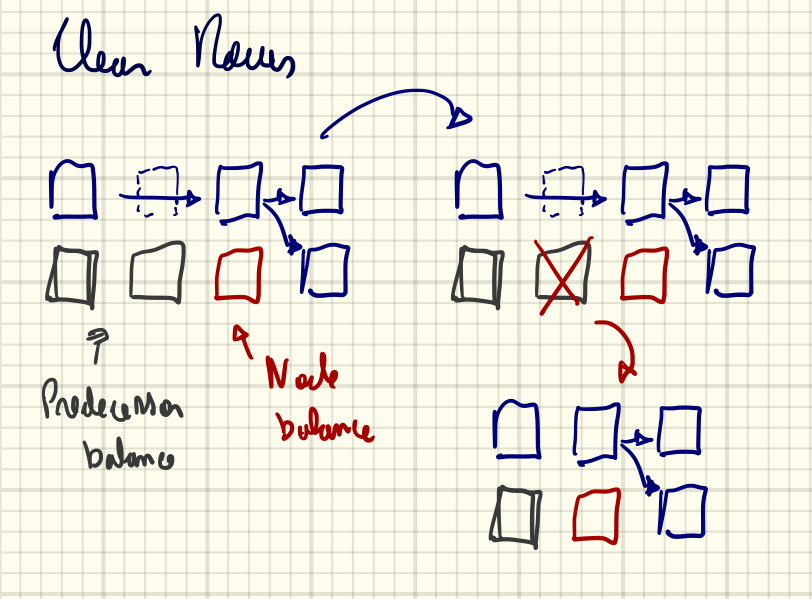 Clean Nodes
Predecessor
balance
Node
balance